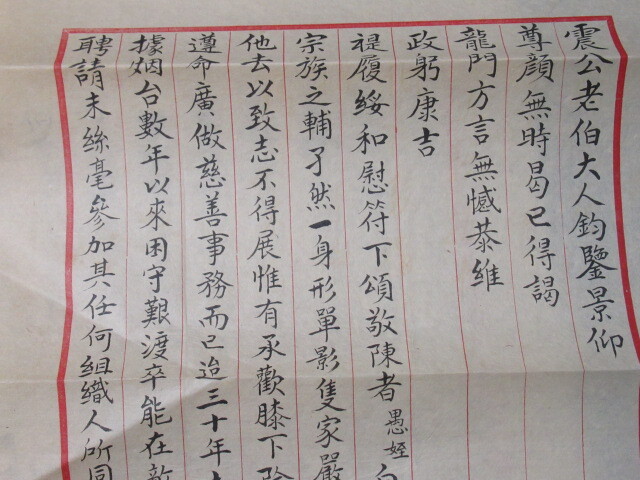 震公老伯大人鈞鑒景仰
尊顏無時曷已得謁
龍門方言無憾恭維
政躬康吉
禔履綏和慰符下頌敬陳者愚姪自
宗族之輔孑然一身形單影隻家嚴
他去以致志不得展惟有承歡膝下除
遵命廣做慈善事務而已迨三十年
據烟台數年以來困守艱渡卒能在敵
聘請未絲毫參加其任何組織人所同